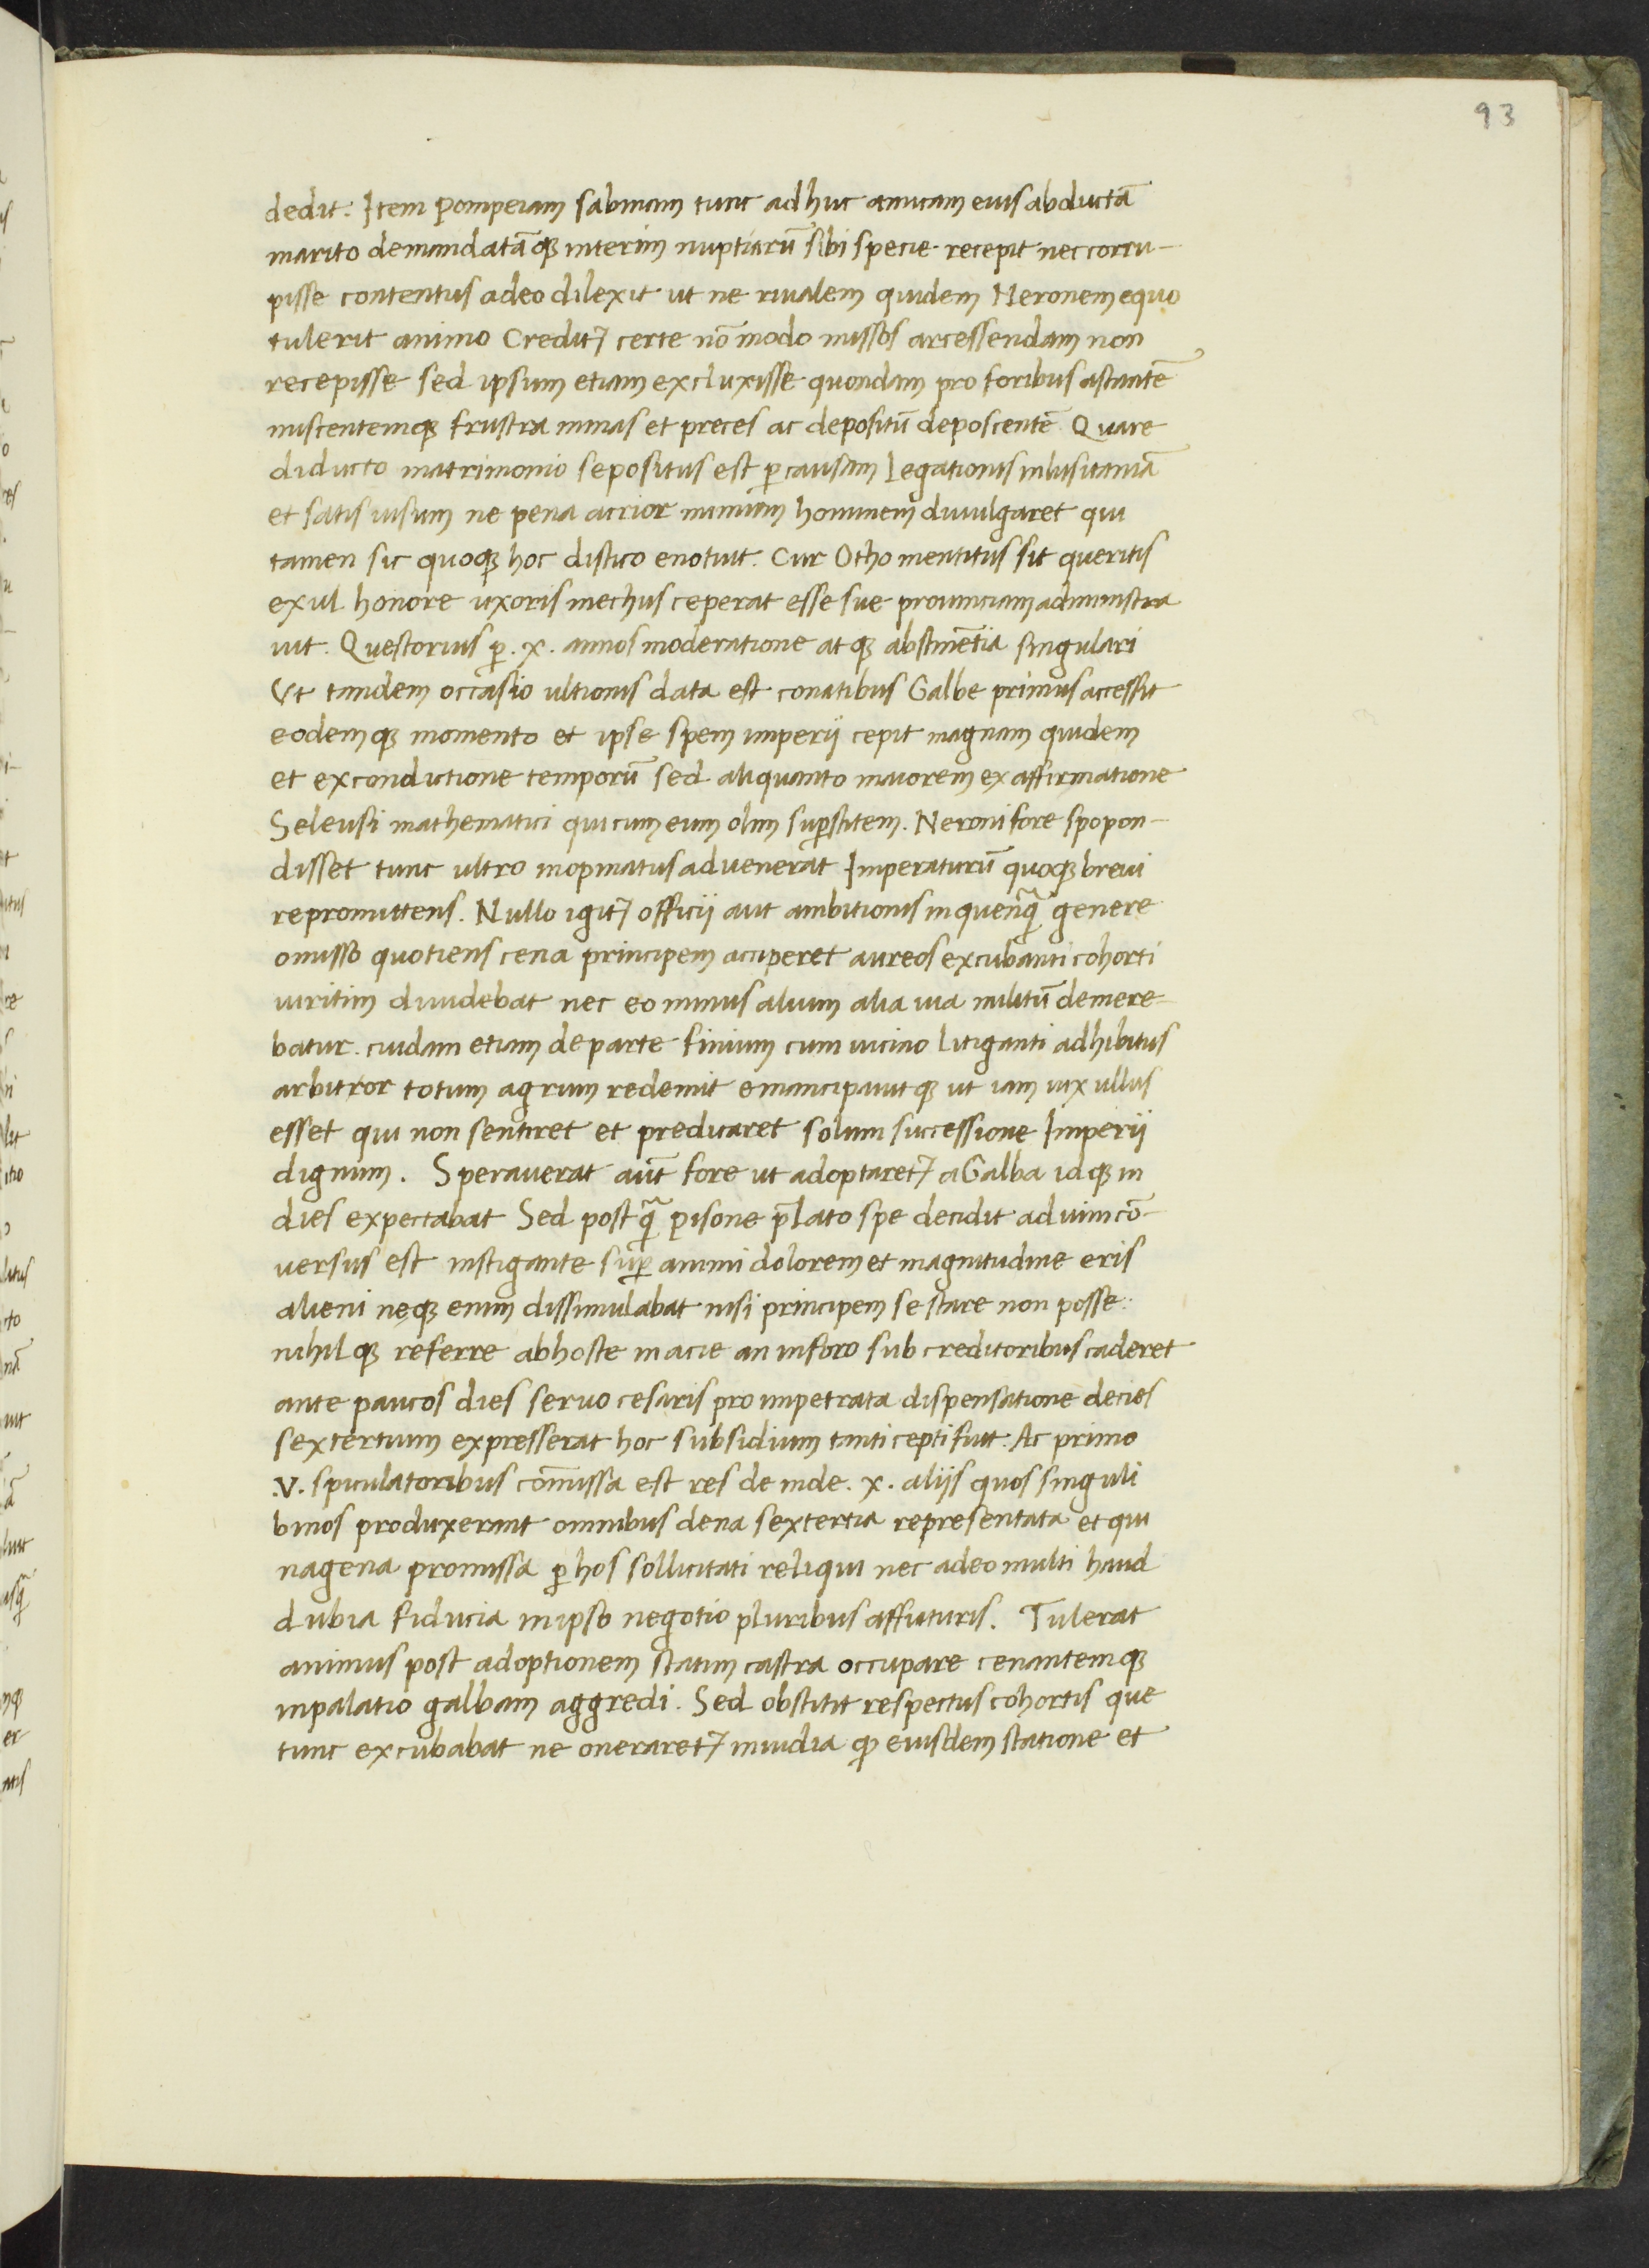 93
dedit: Item Pompeiam sabinam tunc adhuc amicam eius abductā
marito demandatāqꝫ interim nuptiarū sibi specie recepit nec corru-
pisse contentus adeo dilexit ut ne riualem quidem Neronem equo
tulerit animo Creditꝰ certe nō modo missos arcessendam non
recepisse sed ipsum etiam excluxisse quondam pro foribus astantē
miscentemqꝫ frustra minas et preces ac depositū deposcentē Quare
diducto matrimonio sepositus est ꝑ causam legationis in lusitaniā
et satis uisum ne pena acrior mimum hominem diuulgaret qui
tamen sic quoqꝫ hoc distico enotuit. Cur Otho mentitus sit queritis
exul honore uxoris mechus ceperat esse sue prouinciam administra
uit. Questorius ꝑ .x. annos moderatione atqꝫ abstinētia singulari
Ut tandem occasio ultionis data est conatibus Galbe primus accessit
eodemqꝫ momento et ipse spem imperij cepit magnam quidem
et ex condutione temporū sed aliquanto maiorem ex affirmatione
Seleusi mathematici qui cum eum olim suꝑstitem. Neroni fore spopon-
disset tunc ultro inopinatus aduenerat Imperaturū quoqꝫ breui
repromittens. Nullo igitꝰ officij aut ambitionis in quenq̄ genere
omisso quotiens cena principem acciperet aureos excubanti cohorti
uiritim diuidebat nec eo minus alium alia uia militū demere-
batur. cuidam etiam de parte finium cum uicino litiganti adhibitus
arbitror totum agrum redemit emancipauitqꝫ ut iam uix ullus
esset qui non sentiret et predicaret solum successione Imperij
dignum. Sperauerat aūt fore ut adoptaretꝰ a Galba idqꝫ in
dies expectabat Sed postq̄ pisone p̄lato spe decidit ad uim cō-
uersus est instigante suꝑ animi dolorem et magnitudine eris
alieni neqꝫ enim dissimulabat nisi principem se stare non posse:
nihilqꝫ referre ab hoste in acie an in foro sub creditoribus caderet
ante paucos dies seruo cesaris pro impetrata dispensatione decies
sextertium expresserat hoc subsidium tanti cepti fuit. Ac primo
.V. spiculatoribus cōmissa est res de inde .x. alijs quos singuli
binos produxerant omnibus dena sextertia representata et qui
nagena promissa ꝑ hos sollicitati reliqui nec adeo multi haud
dubia fiducia in ipso negotio pluribus affuturis. Tulerat
animus post adoptionem statim castra occupare cenantemqꝫ
in palatio galbam aggredi. Sed obstitit respectus cohortis que
tunc excubabat ne oneraretꝰ inuidia qꝫ eiusdem statione et